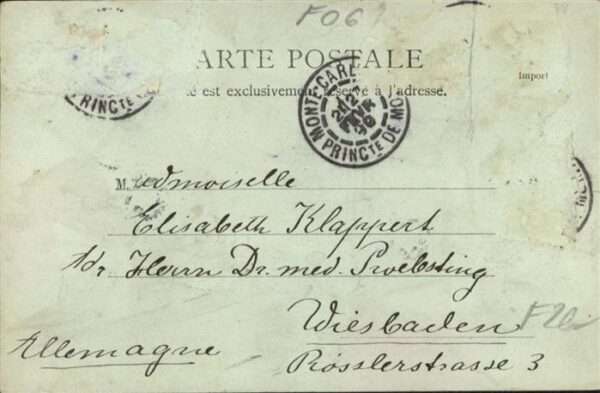 F06
ARTE POSTALE
té est exclusivement réservé à l'adresse.
Import
PRINCTE
MONTE CARL
12
FEVR
99
PRINCTE DE MO
M. ademoiselle
Elisabeth Klappert
Herrn Dr. med. Proebsting
Wiesbaden
Allemagne
Rösslerstrasse 3